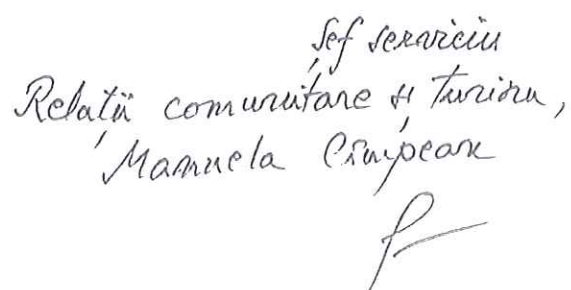 Șef serviciu
Relații comunitare și turism,
Manuela Cîmpean